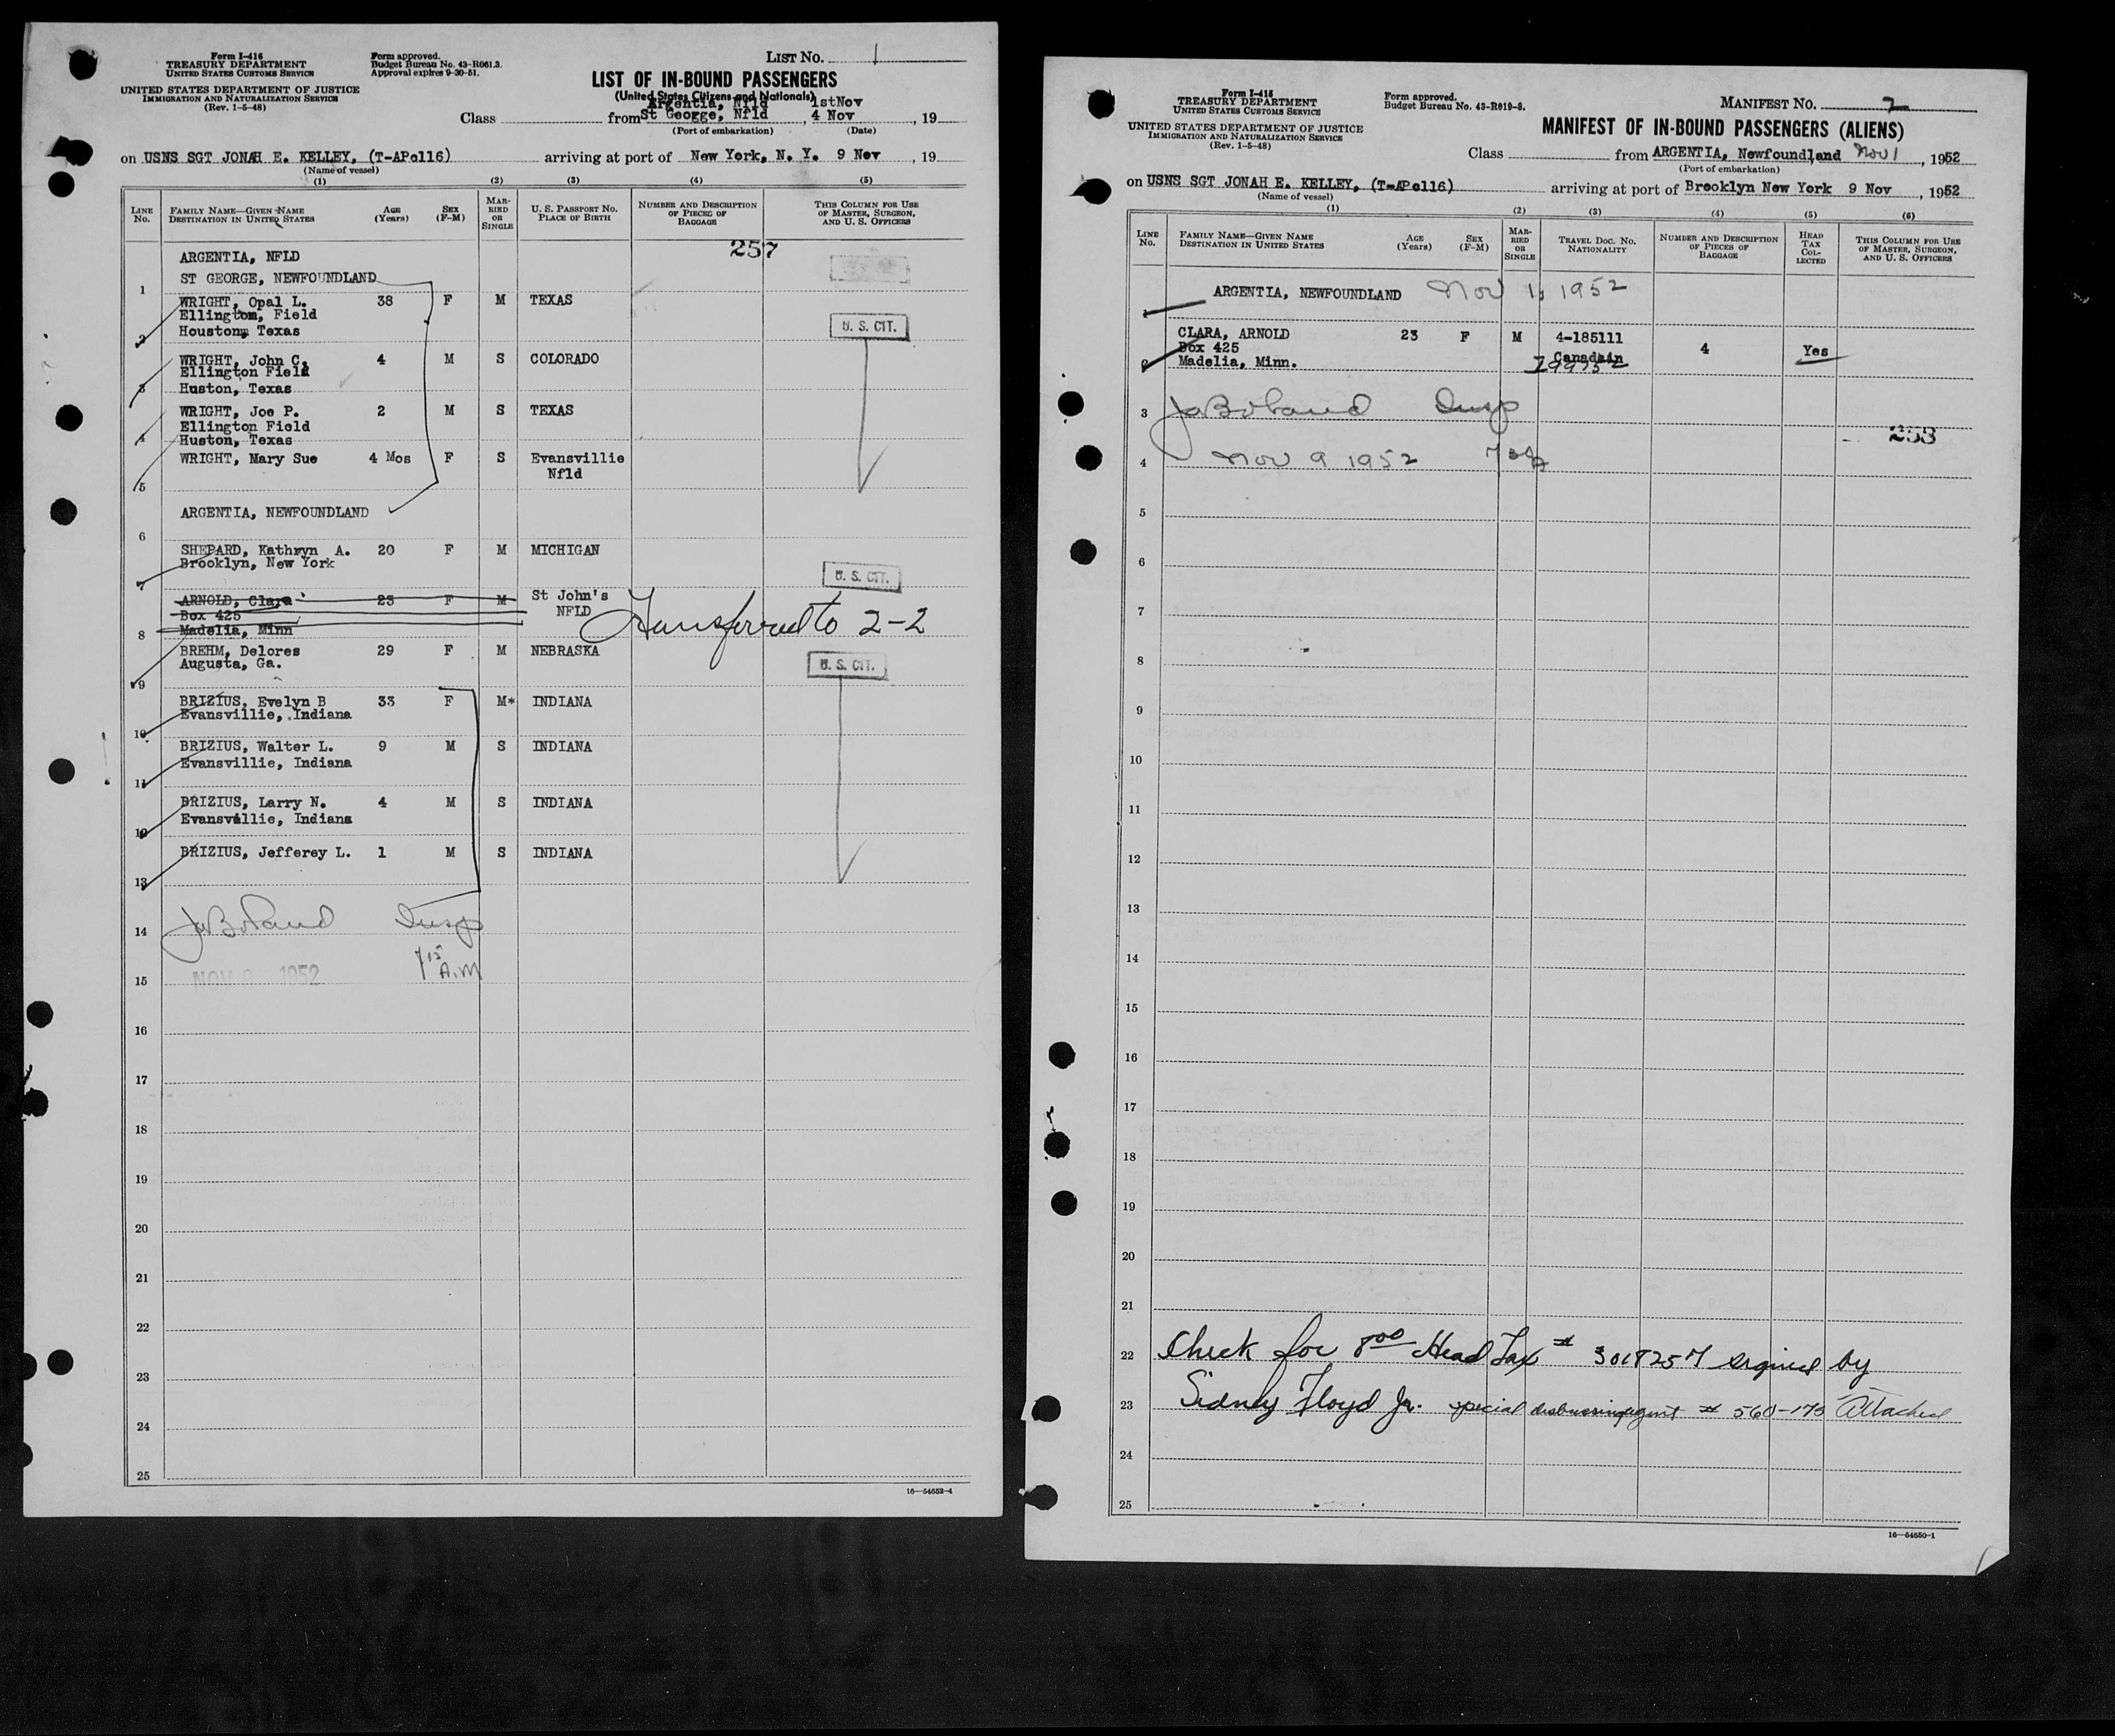 Form I-416
TREASURY DEPARTMENT
UNITED STATES CUSTOMS SERVICE
UNITED STATES DEPARTMENT OF JUSTICE
IMMIGRATION AND NATURALIZATION SERVICE
(Rev. 1-5-48)
Form approved.
Budget Bureau No. 43-R061.3.
Approval expires 9-30-51.
LIST NO. 1
LIST OF IN-BOUND PASSENGERS
(United States Citizens and Nationals)
Argentia, Nfld 1stNov
Class from St George, Nfld , 4 Nov , 19
(Port of embarkation) (Date)
on USNS SGT JONAH E. KELLEY, (T-AP0116) arriving at port of New York, N. Y. 9 Nov , 19
(Name of vessel)
(1) (2) (3) (4) (5)
LINE No.
FAMILY NAME—GIVEN NAME
DESTINATION IN UNITED STATES
AGE (Years)
SEX (F-M)
MARRIED OR SINGLE
U. S. PASSPORT NO.
PLACE OF BIRTH
NUMBER AND DESCRIPTION OF PIECES OF BAGGAGE
THIS COLUMN FOR USE OF MASTER, SURGEON, AND U. S. OFFICERS
257
ARGENTIA, NFLD
ST GEORGE, NEWFOUNDLAND
1
WRIGHT, Opal L. 38 F M TEXAS
Ellington, Field
Houston, Texas
U. S. CIT.
2
WRIGHT, John C. 4 M S COLORADO
Ellington Field
Huston, Texas
3
WRIGHT, Joe P. 2 M S TEXAS
Ellington Field
Huston, Texas
4
WRIGHT, Mary Sue 4 Mos F S Evansvillie
Nfld
5
ARGENTIA, NEWFOUNDLAND
6
SHEPARD, Kathryn A. 20 F M MICHIGAN
Brooklyn, New York
U. S. CIT.
7
ARNOLD, Clara 23 F M St John's
NFLD
Box 425
Madelia, Minn
Transferred to 2-2
8
BREHM, Delores 29 F M NEBRASKA
Augusta, Ga.
U. S. CIT.
9
BRIZIUS, Evelyn B 33 F M* INDIANA
Evansvillie, Indiana
10
BRIZIUS, Walter L. 9 M S INDIANA
Evansvillie, Indiana
11
BRIZIUS, Larry N. 4 M S INDIANA
Evansvillie, Indiana
12
BRIZIUS, Jefferey L. 1 M S INDIANA
13
Insp
14
7 15 A.M
NOV 1952
15
16
17
18
19
20
21
22
23
24
25
16—54652-4
Form I-415
TREASURY DEPARTMENT
UNITED STATES CUSTOMS SERVICE
UNITED STATES DEPARTMENT OF JUSTICE
IMMIGRATION AND NATURALIZATION SERVICE
(Rev. 1-5-48)
Form approved.
Budget Bureau No. 43-R019-8.
MANIFEST NO. 2
MANIFEST OF IN-BOUND PASSENGERS (ALIENS)
Class from ARGENTIA, Newfoundland Nov 1 , 1952
(Port of embarkation)
on USNS SGT JONAH E. KELLEY, (T-AP0116) arriving at port of Brooklyn New York 9 Nov , 1952
(Name of vessel)
(1) (2) (3) (4) (5) (6)
LINE No.
FAMILY NAME—GIVEN NAME
DESTINATION IN UNITED STATES
AGE (Years)
SEX (F-M)
MARRIED OR SINGLE
TRAVEL DOC. NO.
NATIONALITY
NUMBER AND DESCRIPTION OF PIECES OF BAGGAGE
HEAD TAX COLLECTED
THIS COLUMN FOR USE OF MASTER, SURGEON, AND U. S. OFFICERS
ARGENTIA, NEWFOUNDLAND Nov 1, 1952
1
CLARA, ARNOLD 23 F M 4-185111 4 Yes
Box 425 Canadain
Madelia, Minn.
2
Insp
3
258
Nov 9 1952
4
5
6
7
8
9
10
11
12
13
14
15
16
17
18
19
20
21
22 Check for 8 00 Head Tax # 3018257 signed by
23 Sidney Floyd Jr. special disbursing agent # 560-173 Attached
24
25
16—54650-1